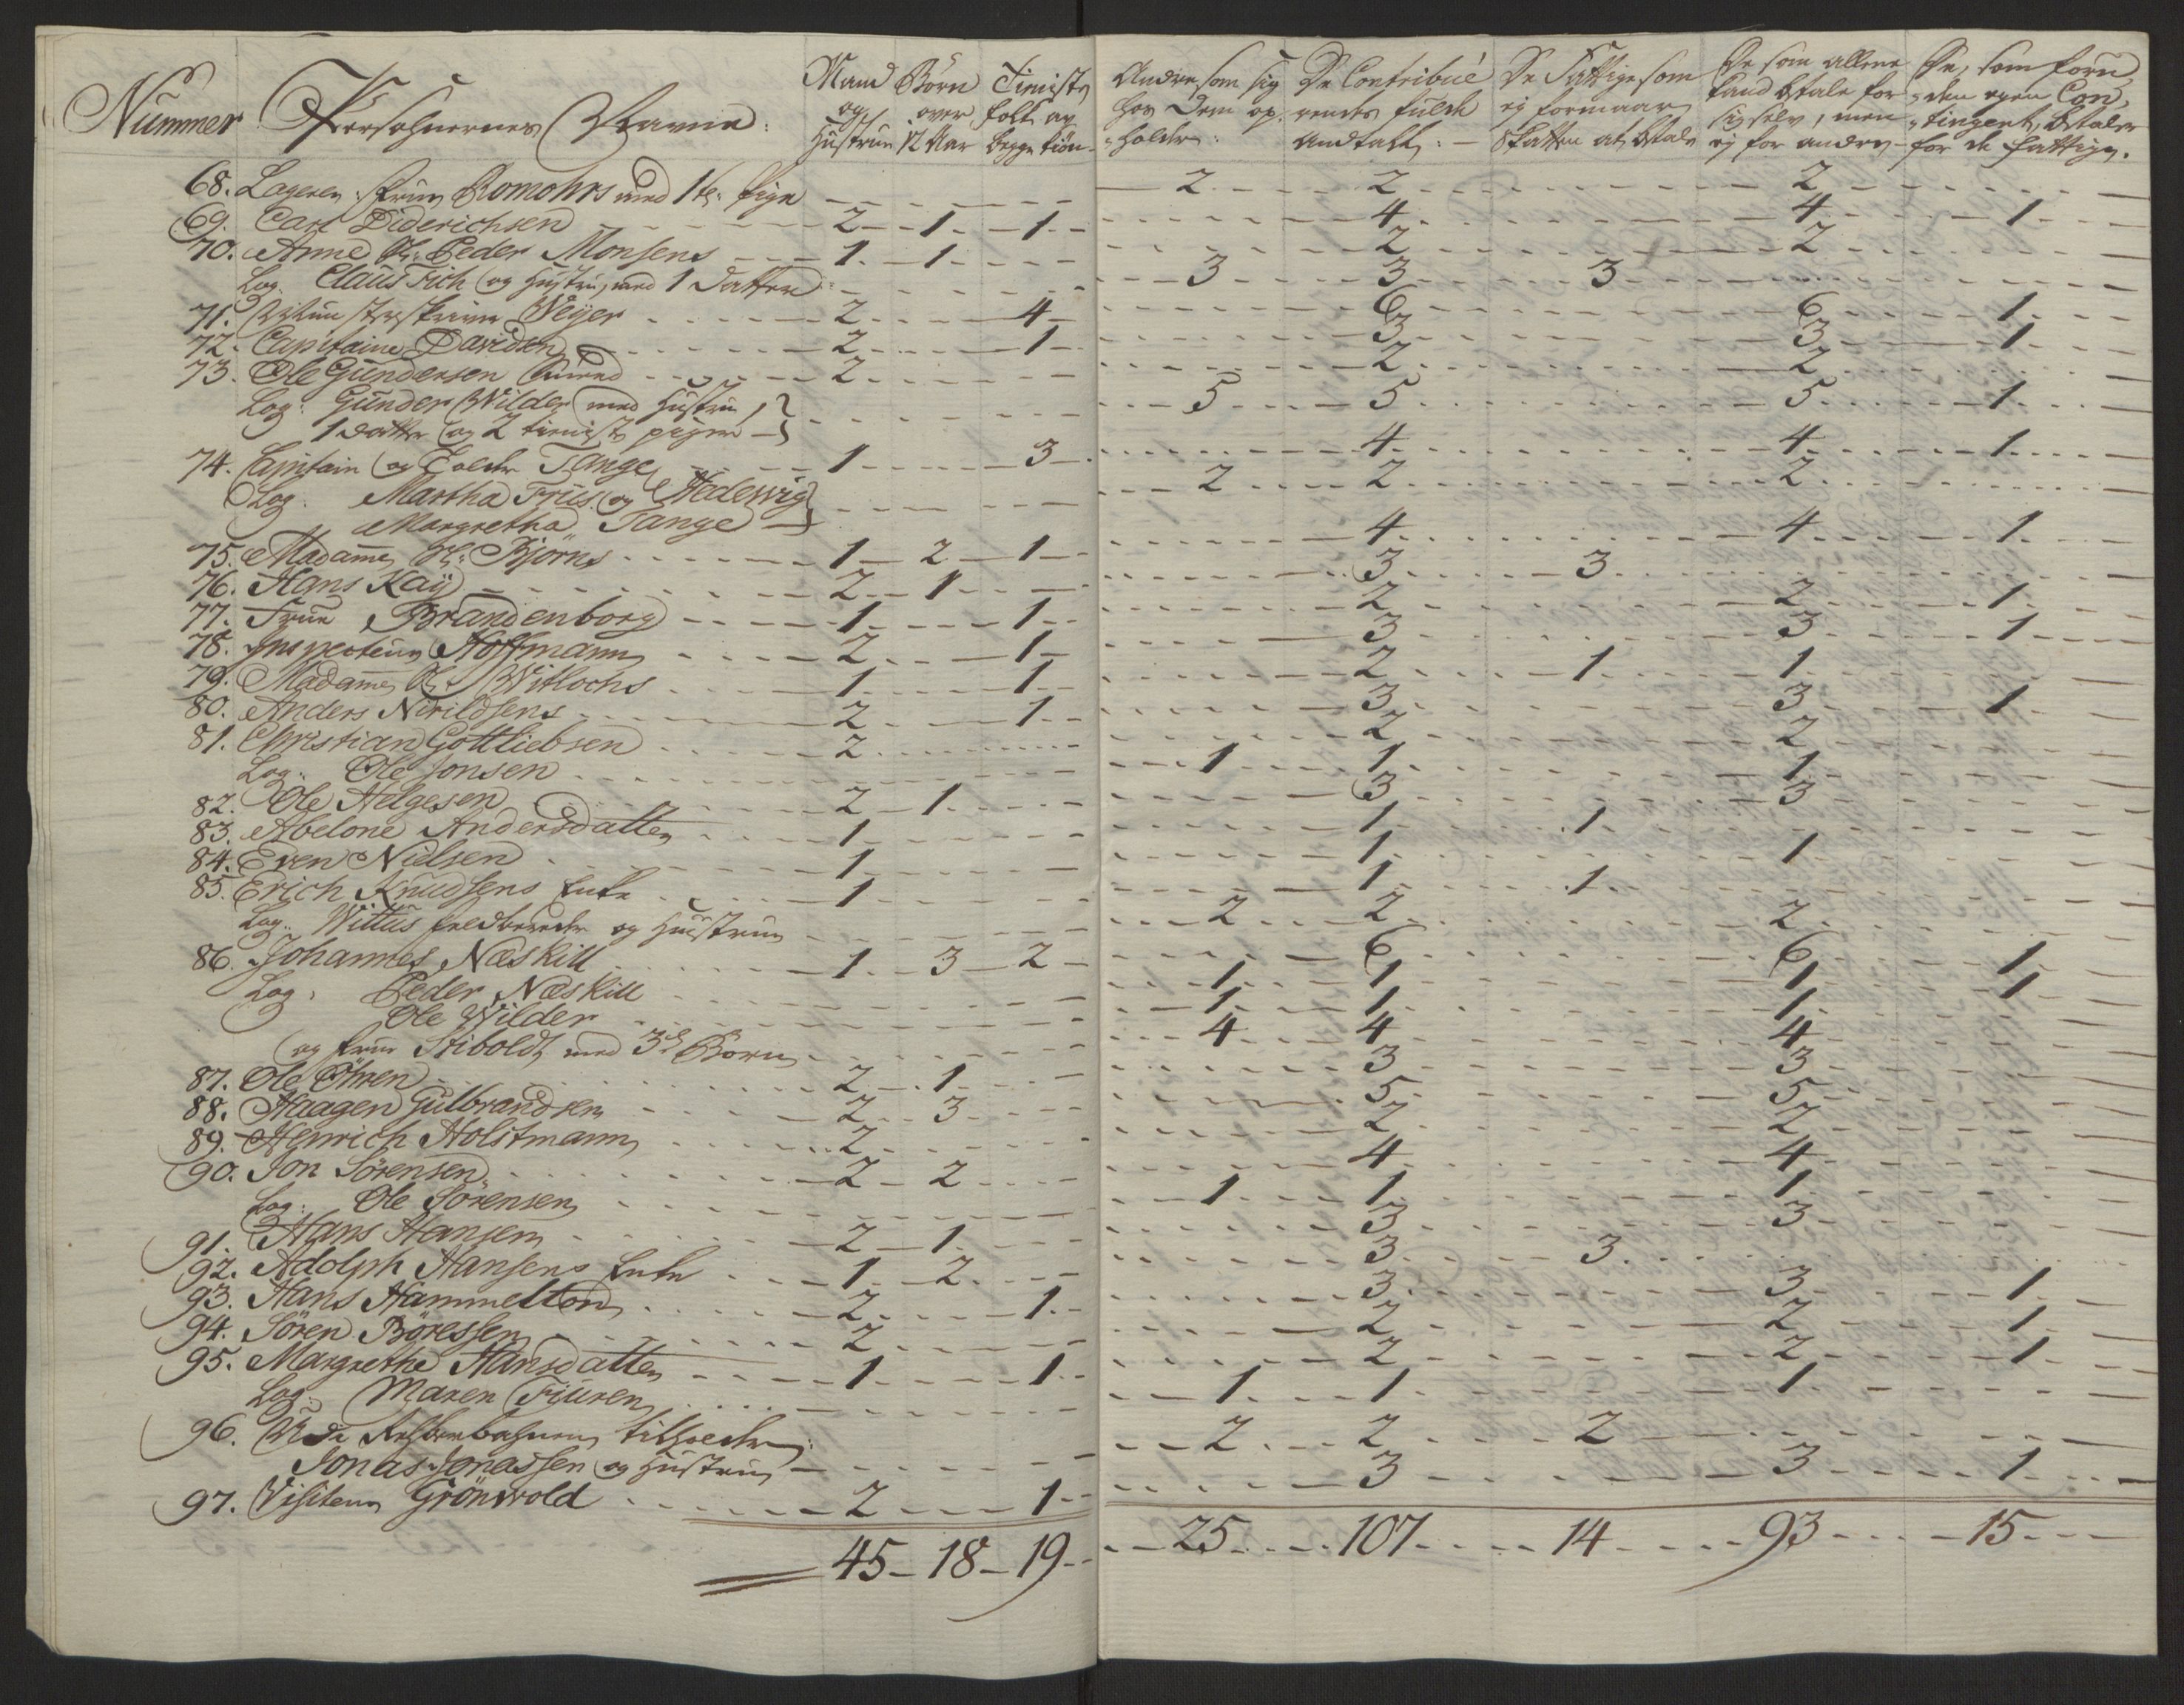 Nummer Persohnernes Navne: Mand og Hustrue Börn over 12 Aar Tieniste folk av begge kiön Andre som sig hos Dem op-holder: De Contribuerendes fulde Andtall: De Fattige som ej formaar Skatten at betale De som allene kand betale for sig selv, men ej for andre De, som foruden egen Contingent, betaler for de fattige.
68. Logerer: Frue Romohrs med 1 Pige - 2 2 2
69. Carl Diderichsen 2 1 1 4 4 1
70. Anne Peder Monsens 1 1 2 2
Log. Claus Fich og Hustru, med 1 Datter 3 3 3
71. Weyer 2 4 6 6 1
72. Capitaine Davidsen 2 1 3 3 1
73. Ole Gundersen 2 2 2
Log: Gunder Wilder med Hustru,
1 datter og 2 tieniste piger 5 5 5 1
74. Capitain og Tolder Tange 1 3 4 4 1
Log. Martha Friis og Hedewig
Margretha Tange 2 2 2
75. Madame Sl: Björns 1 2 1 4 4 1
76. Hans Kay 2 1 3 3
77. Frue Brandenborg 1 1 2 2 1
78. Inspecteur Hoffmann 2 1 3 3 1
79. Madame Witlochs 1 1 2 1 1
80. Anders Nirildsens 2 1 3 3 1
81. Christian Gottliebsen 2 2 2
Log: Ole Jonsen 1 1 1
82. Ole Helgesen 2 1 3 3
83. Abelone Andersdatter 1 1 1
84. Even Nielsen 1 1 1
85. Erich Knudsens Enke 1 1 1
Log. Wittus feldbereder og Hustrue 2 2 2
86. Johannes Næskill 1 3 2 6 6 1
Log. Peder Næskill 1 1 1 1
Ole Wilder 1 1 1
og Frue Stibolds med 3 Börn 4 4 4
87. Ole Olsen 2 1 3 3
88. Haagen Gulbrandsen 2 3 5 5
89. Henrich Holstmann 2 2 2
90. Jon Sörensen 2 2 4 4
Log: Ole Sörensen 1 1 1
91. Hans Hansen 2 1 3 3
92. Adolph Hansens Enke 1 2 3 3
93. Hans Hammelton 2 1 3 3 1
94. Sören Böressen 2 2 2 1
95. Margrethe Hansdatter 1 1 2 2 1
Log: Maren Fijuren 1 1 1
96. Ved Reberbahnen tilholder
Jonas Jonassen og Hustrue 2 2 2
97. Visiteur Grönwold 2 1 3 3 1
45 - 18 - 19 25 107 14 93 15